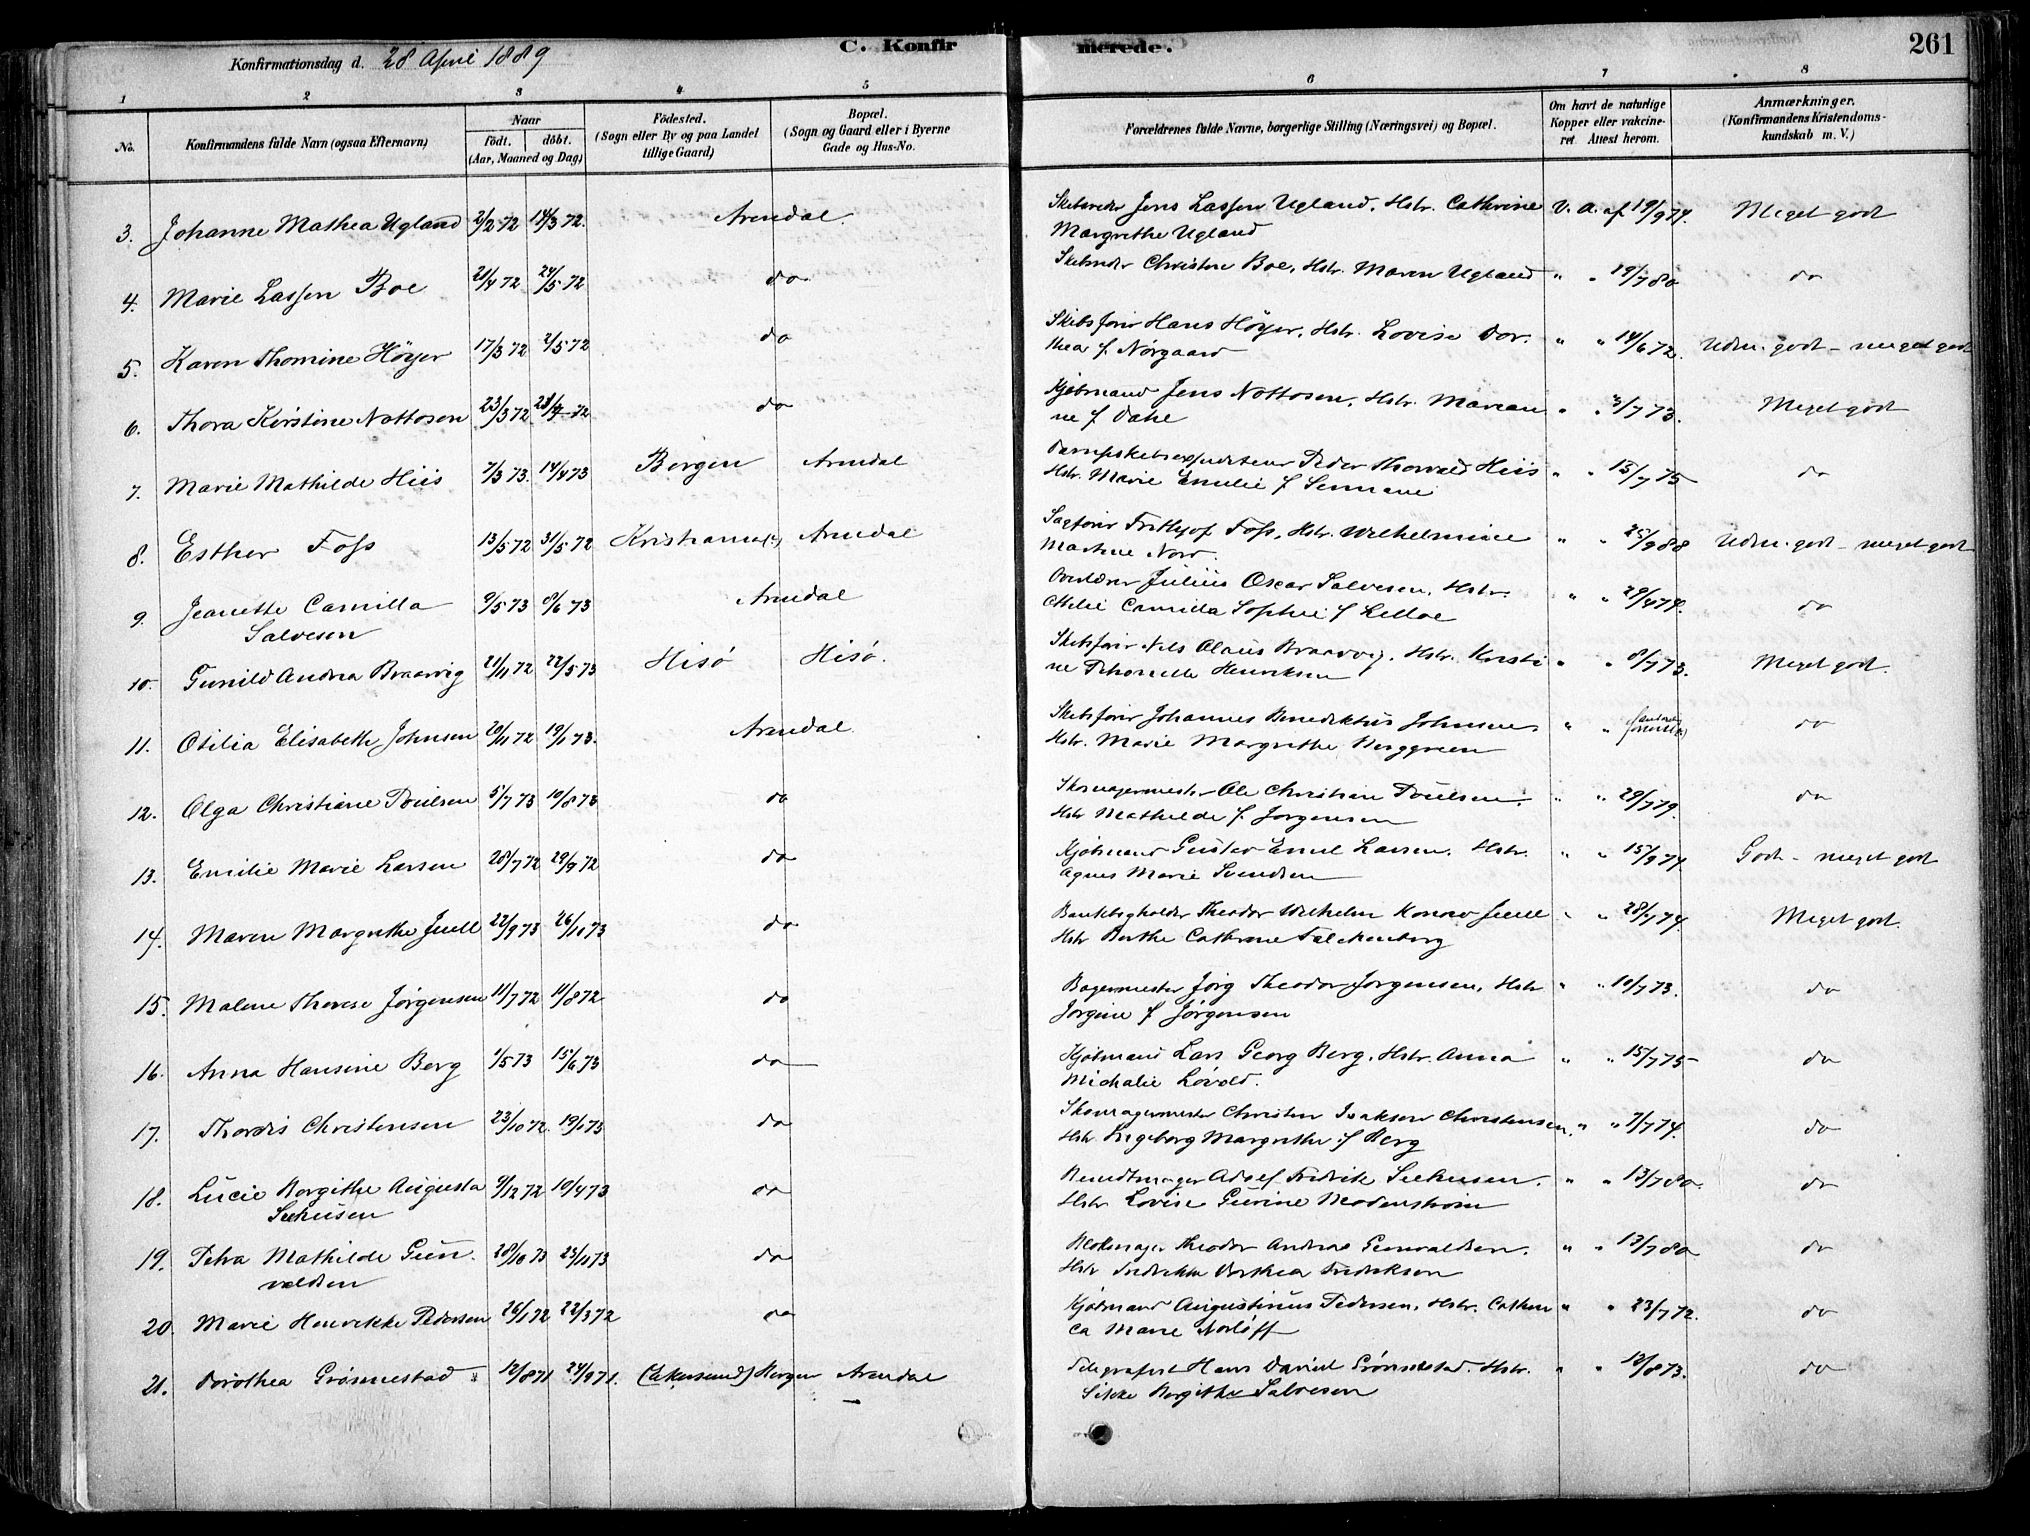 Konfirmationsdag d. 28 April 1889
C. Konfirmerede.
261
1 2 3 4 5 6 7 8
No.
Konfirmandens fulde Navn (ogsaa Efternavn)
Naar
födt. döbt.
(Aar, Maaned og Dag)
Födested.
(Sogn eller By og paa Landet
tillige Gaard)
Bopæl.
(Sogn og Gaard eller i Byerne
Gade og Hus-No.
Forældrenes fulde Navne, borgerlige Stilling (Næringsvei) og Bopæl.
Om havt de naturlige
Kopper eller vakcine-
ret Attest herom.
Anmærkninger.
(Konfirmandens Kristendoms-
kundskab m. V.)
3. Johanne Mathea Ugland 2/2 72 14/3 72. Arendal Skibsreder Jens Lassen Ugland, Hstr. Cathrine V. A. af 19/9 74. Meget godt
Margrethe Ugland
4. Marie Lassen Boe 21/4 72 24/5 72 do Skibsreder Christen Boe, Hstr. Maren Ugland " " 19/7 80 do
5. Karen Thomine Höyer 17/3 72 2/5 72 do Skibsförer Hans Höyer, Hstr. Lovise Dor- " " 14/6 72. Udm. godt - meget godt
thea f. Nørgaard
6. Thora Kirstine Nottosen 23/3 72 28/4 72 do Kjøbmand Jens Nottosen, Hstr. Marian- " " 3/7 73. Meget godt
ne f. Dahl
7. Marie Mathilde Hiis 7/3 73. 14/4 73 Bergen Arendal Dampskibsexpediteur Peder Thorvald Hiis " " 13/7 75 do
Hstr. Marie Emilie f
8. Esther Foss 13/5 72 31/5 72 Kristiania Arendal Sagförer Frithjof Foss, Hstr. Wilhelmine " " 25/9 88 Udm. godt - meget godt
9. Jeanette Camilla 9/5 73 8/6 73 Arendal Overlærer Julius Oscar Salvesen, Hstr. " " 29/4 74. do
Salvesen Camilla Sophie f
10. Gunild Andrea Braavig 21/11 72 22/5 73 Hisø Hisø. Skibsförer Nils Olaus Braavig, Hstr. Kristi- " " 8/7 73. Meget godt.
ne Henriksen
11. Otilia Elisabeth Johnsen 20/11 72 19/1 73. Arendal Skibsförer Johannes Benediktus Johnsen, " " do
Hstr. Marie Margrethe Berggreen
12. Olga Christiane Poulsen 5/7 73 10/8 73 do Skomagermester Ole Christian Poulsen, " " 29/7 79. do
Hstr Mathilde f. Jorgensen
13. Emilie Marie Larsen 28/7 72 29/9 72 do Kjøbmand Gustav Emil Larsen, Hstr. " " 15/9 74. Godt - meget godt
Agnes Marie Svendsen
14. Maren Margrethe Juell 22/9 73 26/10 73 do Bankbogholder Theodor Wilhelm Konow Juell " " 28/7 74. Meget godt.
Hstr Berthe Cathrine Falckenberg
15. Malene Therese Jørgensen 11/7 72 11/8 72 do Bagermester Jörg Theodor Jorgensen, Hstr " " 10/7 73. do
Jörgine f Jørgensen
16. Anna Hansine Berg 1/5 73 15/6 73 do Kjøbmand Lars Georg Berg, Hstr. Anna " " 15/7 75 do
Michalie Lövold.
17. Thordis Christensen 23/10 72. 19/1 73 do Skomagermester Christen Isaksen Christensen, " " 7/7 74. do
Hstr Ingeborg Margrethe f Berg
18. Lucie Borgithe Augusta 9/12 72 10/4 73 do Adolf Fredrik Seehusen, " " 13/7 80. do
Seehusen Hstr Lovise Gurine
19. Petra Mathilde Gun- 28/10 73 23/11 73 do Blokmager Theodor Andreas Gunvaldsen, " " 13/7 80 do
valdsen Hstr Fredrikke Dorthea Fredriksen
20. Marie Henrikke Pedersen 26/1 72 22/3 72 do Kjøbmand Augustinus Pedersen, Hstr. Cathin- " " 23/7 72. do
ca Marie
21. Dorothea Grösnnestad 12/8 71 24/9 71. Bergen Arendal Telegrafist Hans David Hstr. " " 13/8 73. do
Borgithe Salvesen